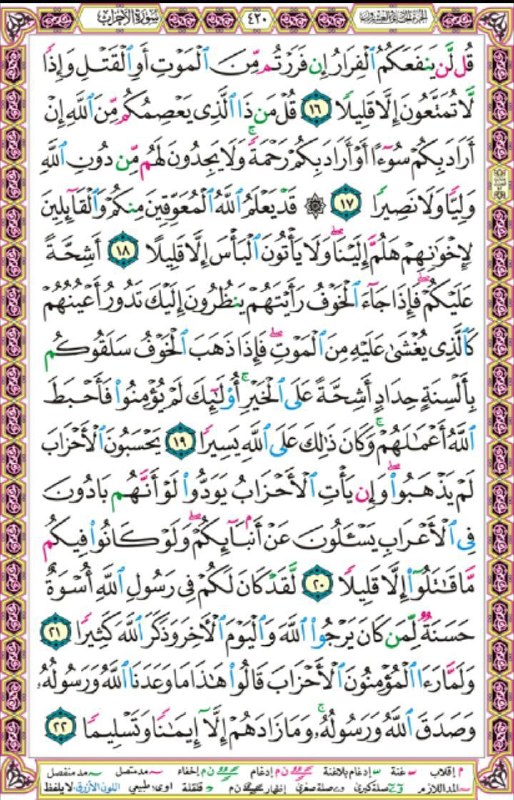 سورة الأحزاب
٤٢٠
الجزء الحادي والعشرون
قُل لَّن يَنفَعَكُمُ ٱلْفِرَارُ إِن فَرَرْتُم مِّنَ ٱلْمَوْتِ أَوِ ٱلْقَتْلِ وَإِذًا
لَّا تُمَتَّعُونَ إِلَّا قَلِيلًا ١٦ قُلْ مَن ذَا ٱلَّذِى يَعْصِمُكُم مِّنَ ٱللَّهِ إِنْ
أَرَادَ بِكُمْ سُوٓءًا أَوْ أَرَادَ بِكُمْ رَحْمَةً ۚ وَلَا يَجِدُونَ لَهُم مِّن دُونِ ٱللَّهِ
وَلِيًّا وَلَا نَصِيرًا ١٧ ۞ قَدْ يَعْلَمُ ٱللَّهُ ٱلْمُعَوِّقِينَ مِنكُمْ وَٱلْقَآئِلِينَ
لِإِخْوَٰنِهِمْ هَلُمَّ إِلَيْنَا ۖ وَلَا يَأْتُونَ ٱلْبَأْسَ إِلَّا قَلِيلًا ١٨ أَشِحَّةً
عَلَيْكُمْ ۖ فَإِذَا جَآءَ ٱلْخَوْفُ رَأَيْتَهُمْ يَنظُرُونَ إِلَيْكَ تَدُورُ أَعْيُنُهُمْ
كَٱلَّذِى يُغْشَىٰ عَلَيْهِ مِنَ ٱلْمَوْتِ ۖ فَإِذَا ذَهَبَ ٱلْخَوْفُ سَلَقُوكُم
بِأَلْسِنَةٍ حِدَادٍ أَشِحَّةً عَلَى ٱلْخَيْرِ ۚ أُو۟لَٰٓئِكَ لَمْ يُؤْمِنُوا۟ فَأَحْبَطَ
ٱللَّهُ أَعْمَٰلَهُمْ ۚ وَكَانَ ذَٰلِكَ عَلَى ٱللَّهِ يَسِيرًا ١٩ يَحْسَبُونَ ٱلْأَحْزَابَ
لَمْ يَذْهَبُوا۟ ۖ وَإِن يَأْتِ ٱلْأَحْزَابُ يَوَدُّوا۟ لَوْ أَنَّهُم بَادُونَ
فِى ٱلْأَعْرَابِ يَسْـَٔلُونَ عَنْ أَنۢبَآئِكُمْ ۖ وَلَوْ كَانُوا۟ فِيكُم
مَّا قَٰتَلُوٓا۟ إِلَّا قَلِيلًا ٢٠ لَّقَدْ كَانَ لَكُمْ فِى رَسُولِ ٱللَّهِ أُسْوَةٌ
حَسَنَةٌ لِّمَن كَانَ يَرْجُوا۟ ٱللَّهَ وَٱلْيَوْمَ ٱلْـَٔاخِرَ وَذَكَرَ ٱللَّهَ كَثِيرًا ٢١
وَلَمَّا رَءَا ٱلْمُؤْمِنُونَ ٱلْأَحْزَابَ قَالُوا۟ هَٰذَا مَا وَعَدَنَا ٱللَّهُ وَرَسُولُهُۥ
وَصَدَقَ ٱللَّهُ وَرَسُولُهُۥ ۚ وَمَا زَادَهُمْ إِلَّآ إِيمَٰنًا وَتَسْلِيمًا ٢٢
م إقلاب غنة إدغام بلاغنة ن م إدغام ن م إخفاء مد متصل مد منفصل
المد اللازم صلة كبرى صلة صغرى إظهار ن م قلقلة اوى طبيعي اللون الأزرق لا يلفظ